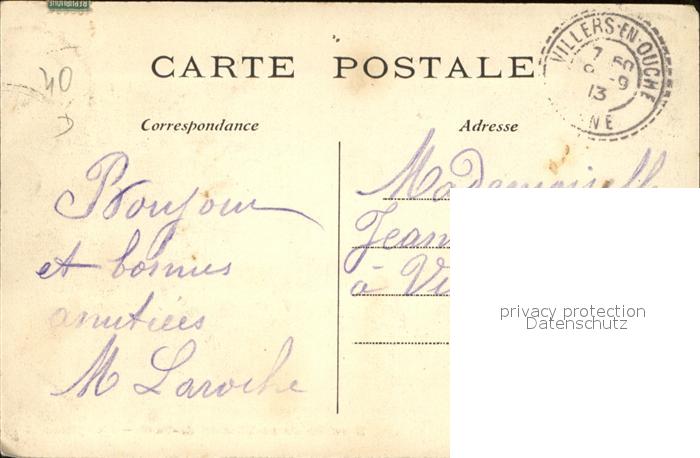 RÉPUBLIQUE
40
D
CARTE POSTALE
VILLERS-EN-OUCHE
7 50
9-9
13
NE
Correspondance
Adresse
Bonjour
et bonnes
amitiées
M Laroche
Mademoiselle
Jean
à Vi
privacy protection
Datenschutz